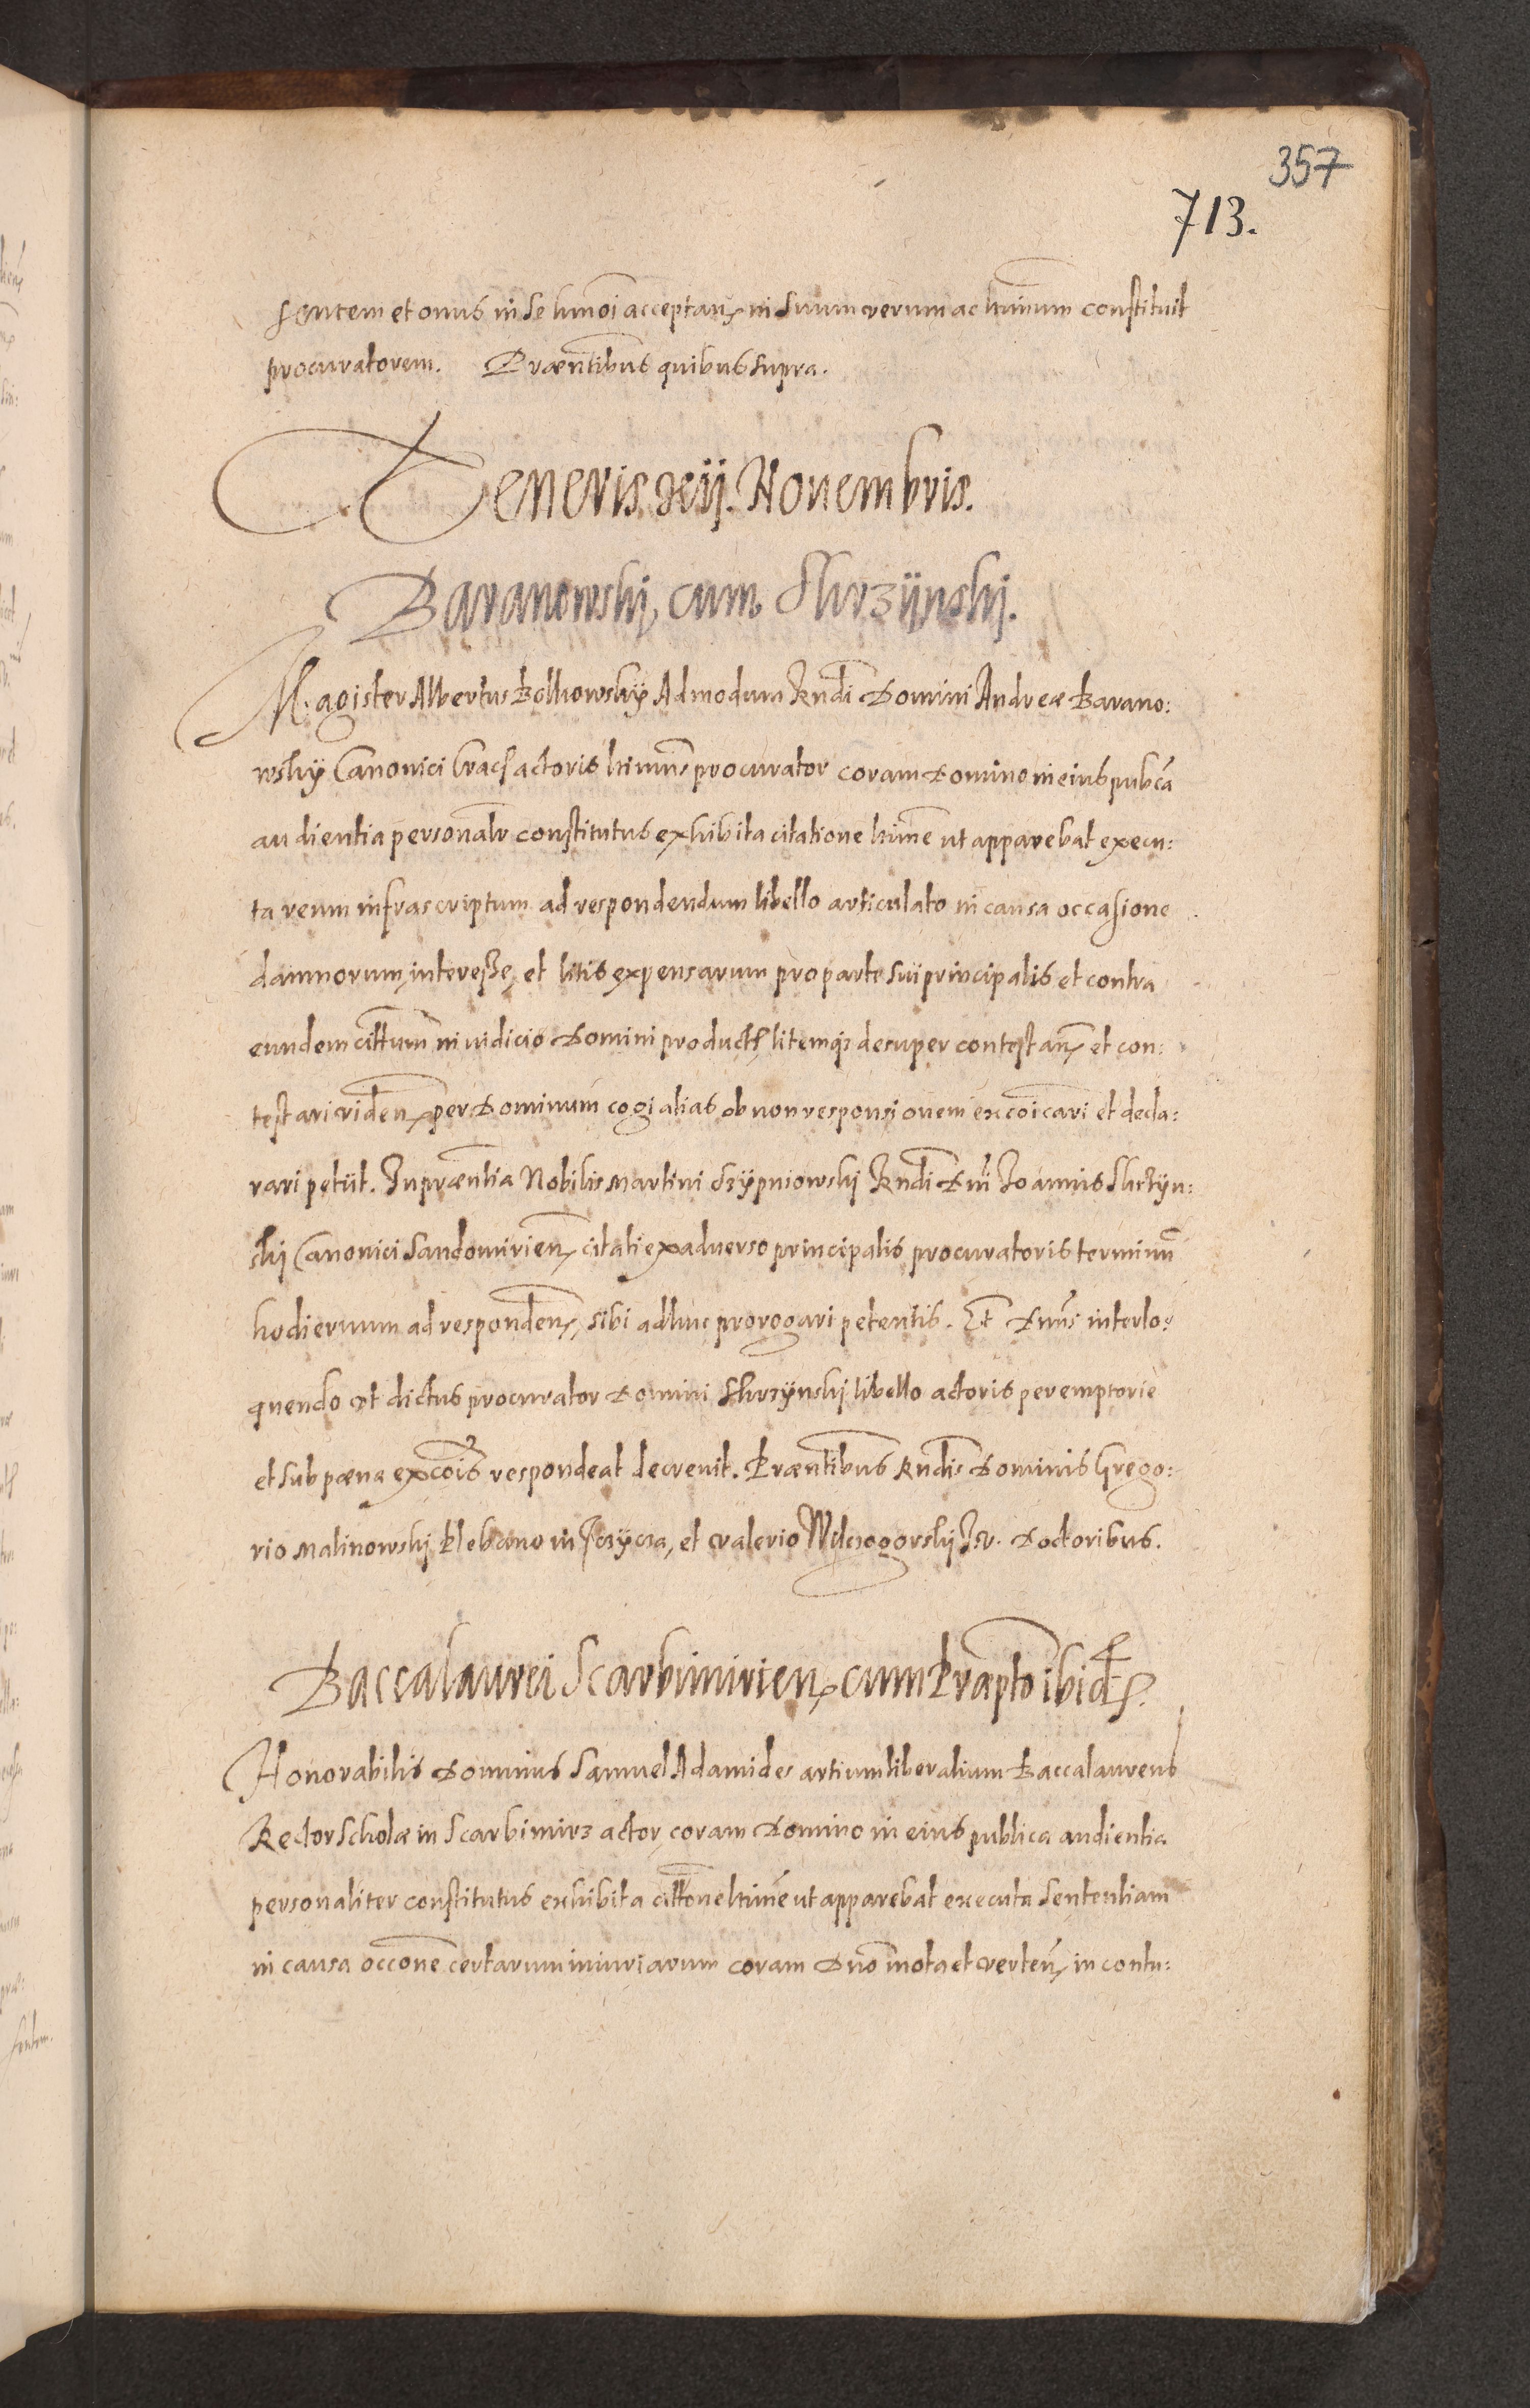 357
713.
sentem et onus in se hmoi acceptan. in suum verum ac ltimum constituit
procuratorem. Præntibus quibus supra.
Veneris xij. Nouembris.
Baranowskj, cum Skrzÿnskj.
Magister Albertus Bolkowskÿ Admodum Rndi Domini Andreæ Barano:
wskÿ Canonici Crac. actoris ltimus procurator coram Domino in eius pubca
audientia personalr constitutus exhibita citatione ltime ut apparebat execu:
ta reum infrascriptum ad respondendum libello articulato in causa occasione
damnorum, interesse, et litis expensarum pro parte sui principalis et contra
eundem cittum in iudicio Domini product. litemq3 desuper contestan. et con:
testari viden. per Dominum cogi alias ob non responsionem excoicari et decla:
rari petiit. In præntia Nobilis Martini Szÿpniowskj Rndi Dni Joannis Skrzÿn:
skj Canonici Sandomirien. citati ex aduerso principalis procuratoris terminu
hodiernum ad responden. sibi adhuc prorogari petentis. Et Dnus interlo:
quendo ut dictus procurator Domini Skrzÿnskj libello actoris peremptorie
et sub pœna excois respondeat decreuit. Præntibus Rndis Dominis Grego:
rio Malinowskj Plebano in, et Valerio J. V. Doctoribus.
Baccalaurei Scarbimirien. cum Præpto ibid.
Honorabilis Dominus Samuel Adamides artium liberalium Baccalaureus
Rector Scholæ in Scarbimirz actor, coram Domino in eius publica audientia
personaliter constitutus exhibita cittone ltime ut apparebat executa sententiam
in causa occone certarum iniuriarum coram Dno mota et verten. in contu: